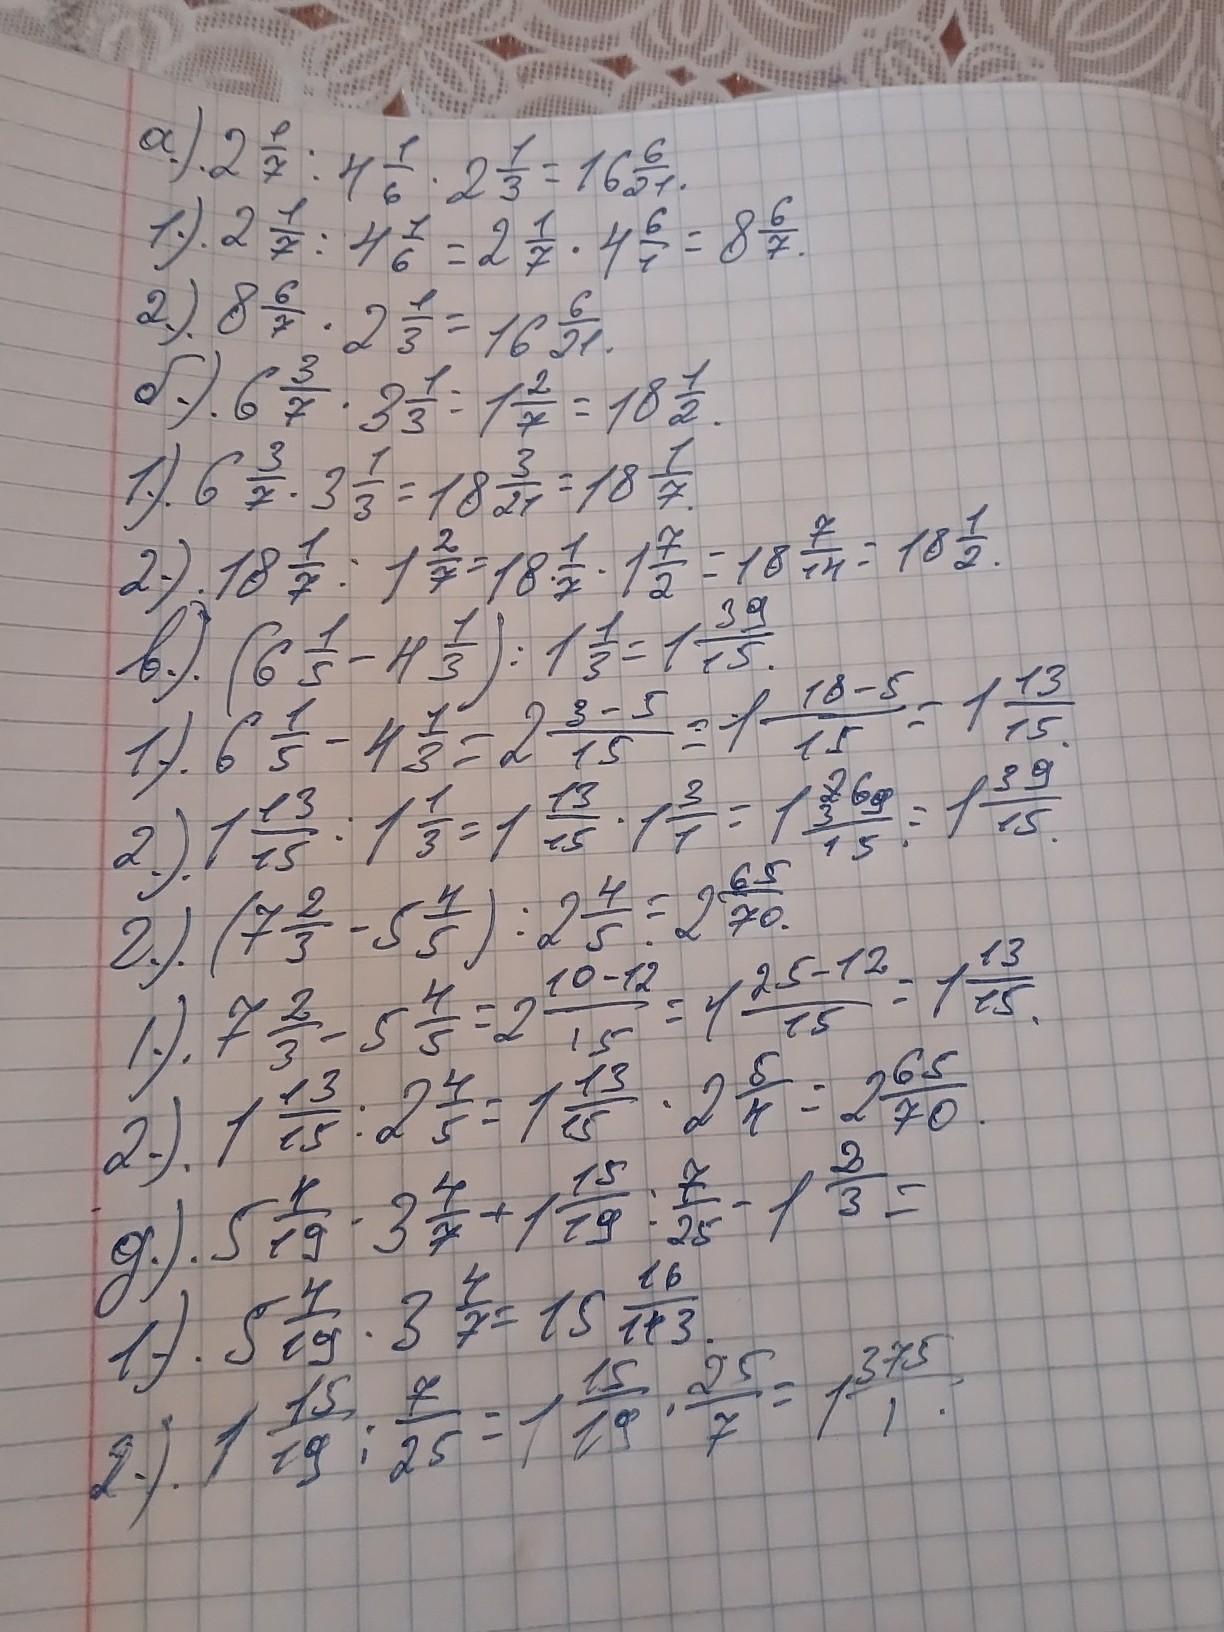 а.). 2 1/7 : 4 1/6 · 2 1/3 = 16 6/21.
1.). 2 1/7 : 4 1/6 = 2 1/7 · 4 6/1 = 8 6/7.
2.). 8 6/7 · 2 1/3 = 16 6/21.
б.). 6 3/7 · 3 1/3 = 1 2/7 = 18 1/2.
1.). 6 3/7 · 3 1/3 = 18 3/21 = 18 1/7.
2.). 18 1/7 : 1 2/7 = 18 1/7 · 1 7/2 = 18 7/14 = 18 1/2.
в.). (6 1/5 - 4 1/3) : 1 1/3 = 1 39/15.
1.). 6 1/5 - 4 1/3 = 2 3-5/15 = 1 18-5/15 = 1 13/15.
2.). 1 13/15 : 1 1/3 = 1 13/15 · 1 3/1 = 1 39/15. = 1 39/15.
г.). (7 2/3 - 5 4/5) : 2 4/5 = 2 65/70.
1.). 7 2/3 - 5 4/5 = 2 10-12/15 = 1 25-12/15 = 1 13/15.
2.). 1 13/15 : 2 4/5 = 1 13/15 · 2 5/4 = 2 65/70.
д.). 5 4/19 · 3 4/7 + 1 15/19 : 7/25 - 1 2/3 =
1.). 5 4/19 · 3 4/7 = 15 16/143.
2.). 1 15/19 : 7/25 = 1 15/19 · 25/7 = 1 375/1 .